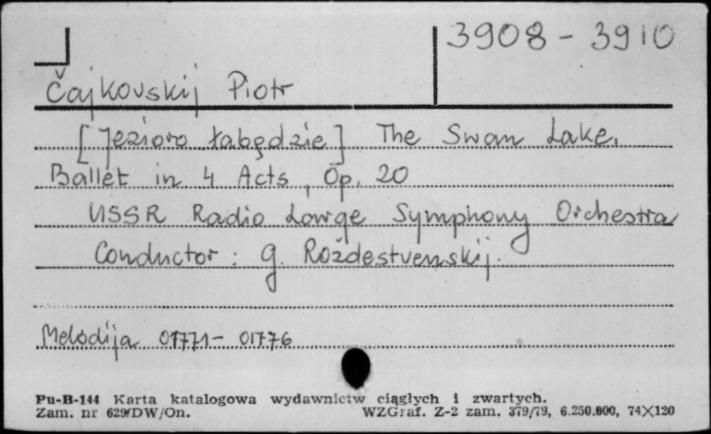 3908 - 3910
Čajkovskij Piotr
[Jezioro łabędzie] The Swan Lake.
Ballet in 4 Acts, Op. 20
USSR Radio Large Symphony Orchestra
Conductor : G. Roždestvenskij.
Melodija 01771- 01776
Pu-B-144 Karta katalogowa wydawnictw ciągłych i zwartych.
Zam. nr 629/DW/On. WZGraf. Z-2 zam. 379/79, 6.250.000, 74X120